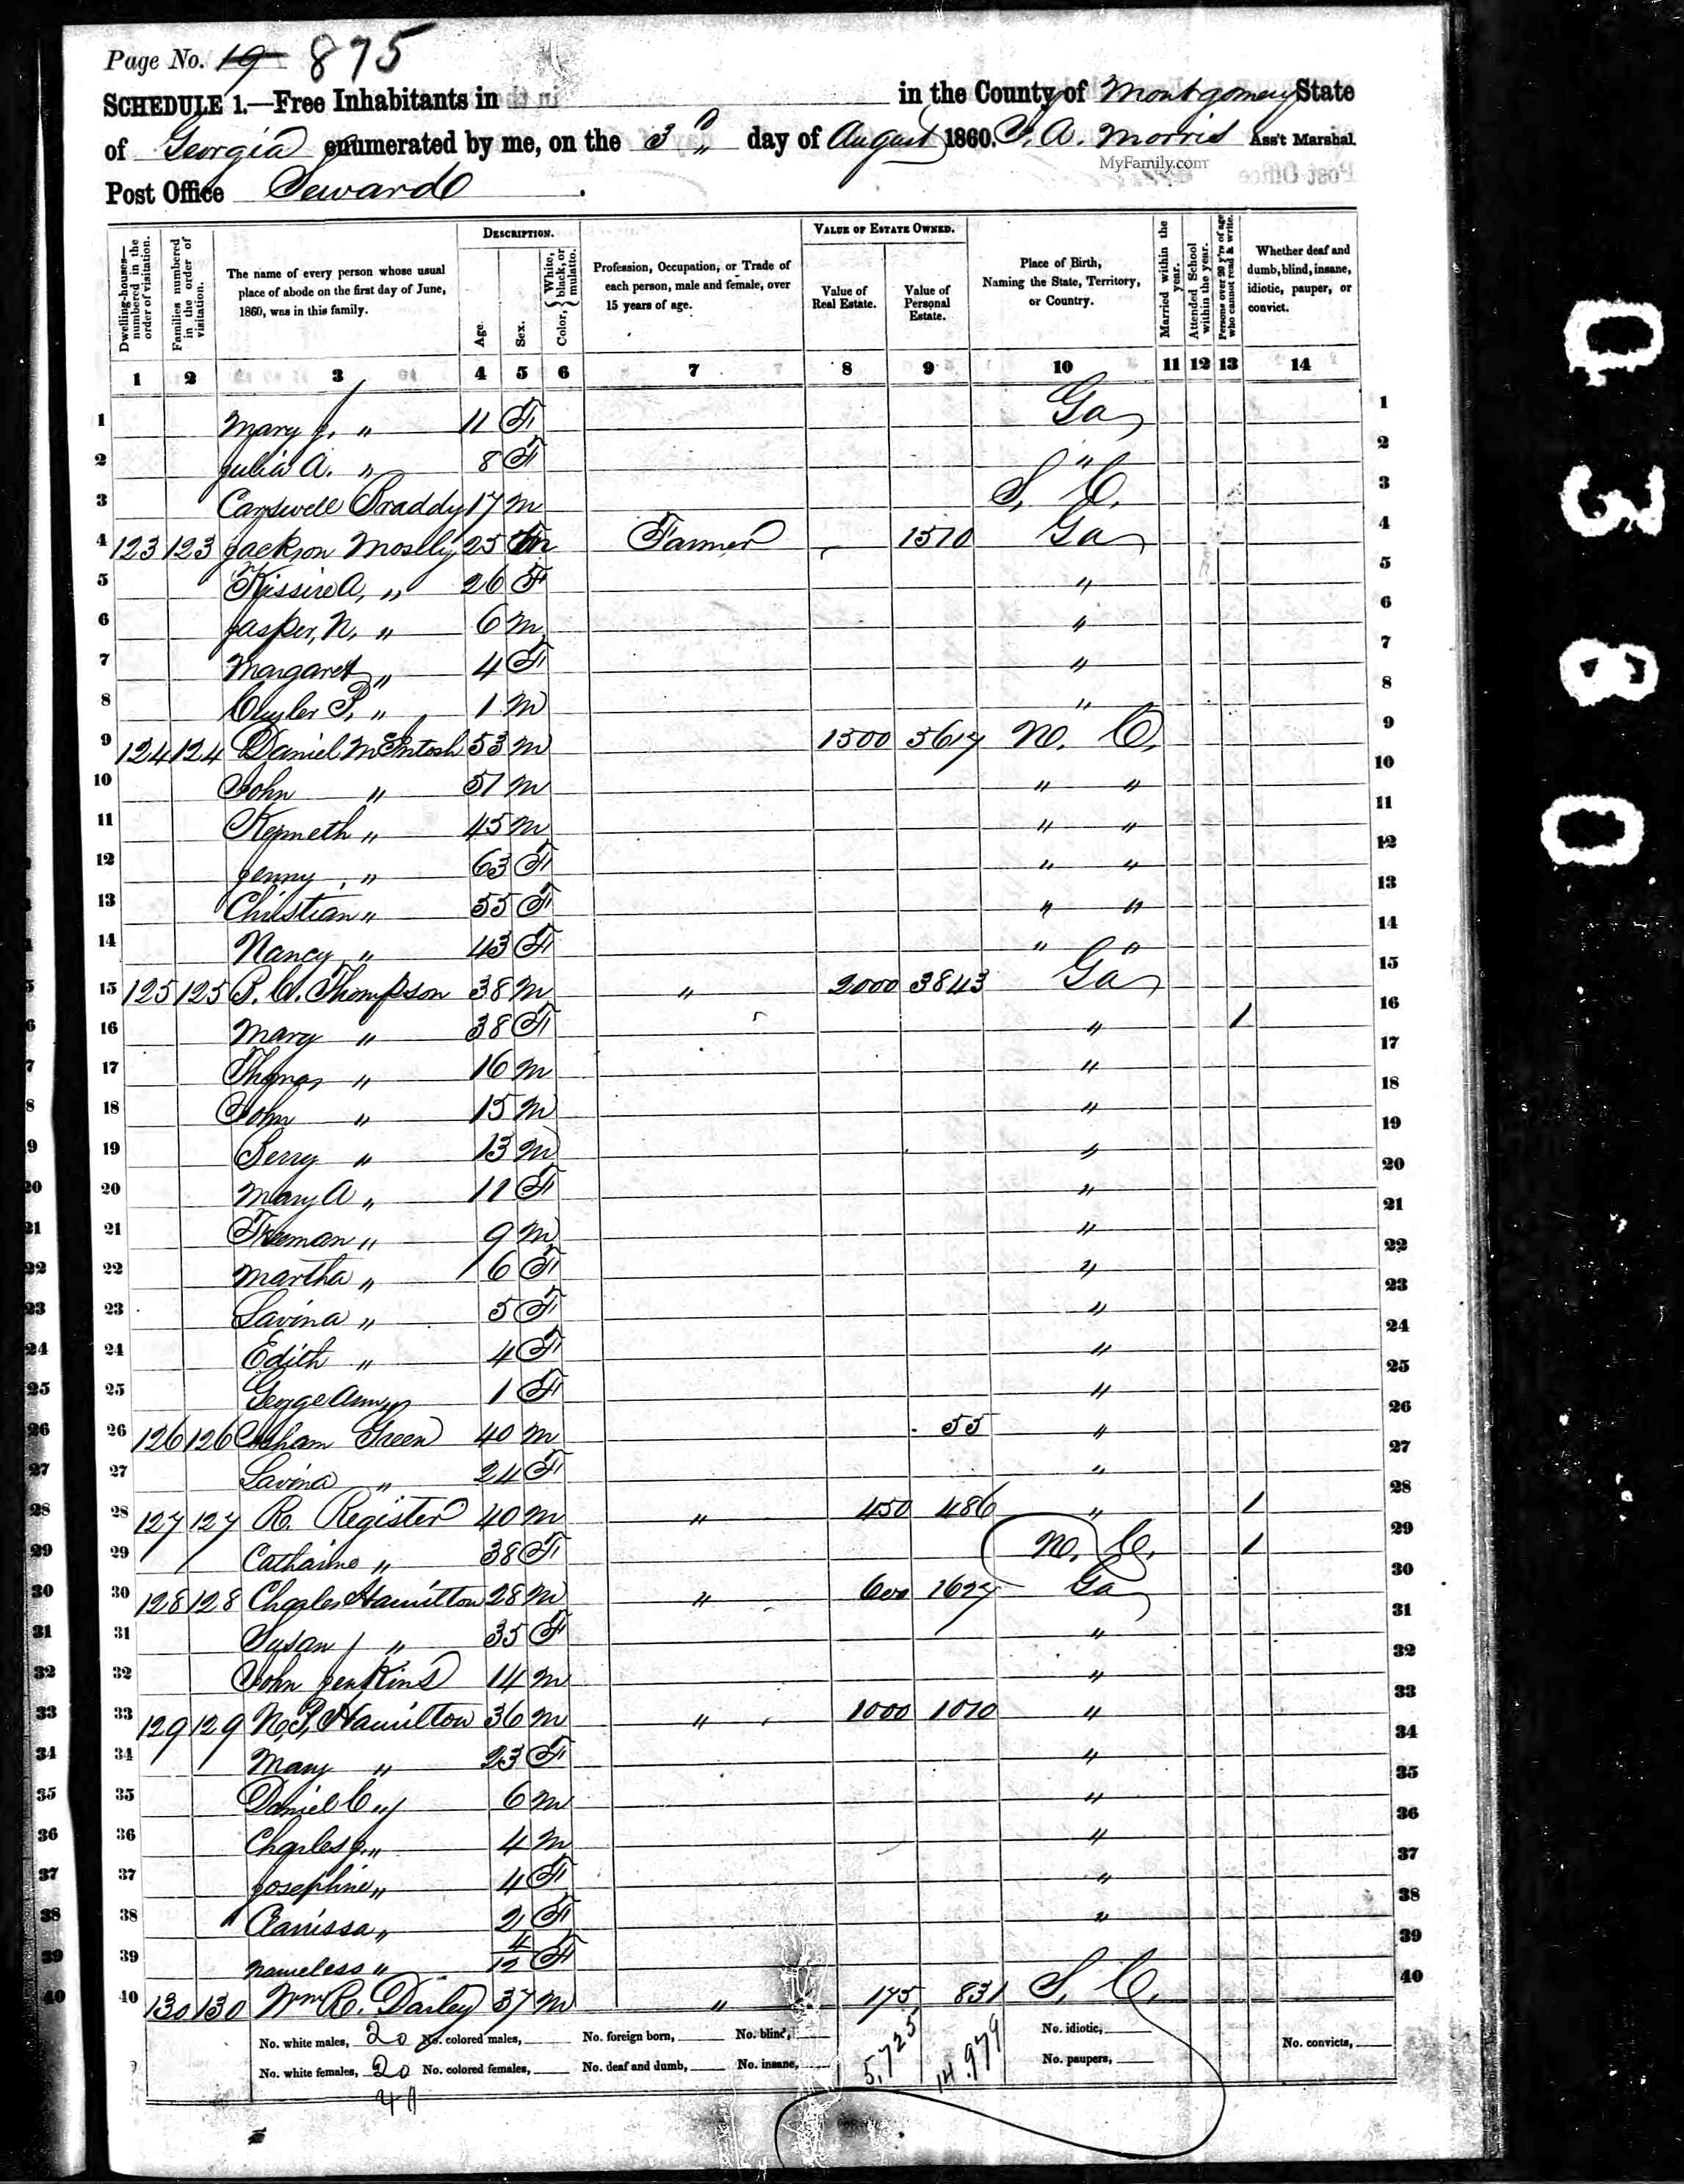 Page No. 19 875
SCHEDULE 1.—Free Inhabitants in in the County of Montgomery State
of Georgia enumerated by me, on the 3" day of August 1860. A. Morris Ass't Marshal.
MyFamily.com
Post Office Seward
Dwelling-houses—numbered in the order of visitation.
Families numbered in the order of visitation.
The name of every person whose usual place of abode on the first day of June, 1860, was in this family.
DESCRIPTION.
Age.
Sex.
Color, { White, black, or mulatto.
Profession, Occupation, or Trade of each person, male and female, over 15 years of age.
VALUE OF ESTATE OWNED.
Value of Real Estate.
Value of Personal Estate.
Place of Birth, Naming the State, Territory, or Country.
Married within the year.
Attended School within the year.
Persons over 20 y'rs of age who cannot read & write.
Whether deaf and dumb, blind, insane, idiotic, pauper, or convict.
1 2 3 4 5 6 7 8 9 10 11 12 13 14
1 Mary J. " 11 F Ga 1
2 Julia A. " 8 F " 2
3 Carswell Braddy 17 m S. C. 3
4 123 123 Jackson Moselly 25 m Farmer 1510 Ga 4
5 Kissire A, " 26 F " 5
6 Jasper, N. " 6 m " 6
7 Margaret " 4 F " 7
8 Cuyler P. " 1 m " 8
9 124 124 Daniel McIntosh 53 m 1500 5617 N. C. 9
10 John " 51 m " " 10
11 Kenneth " 45 m " " 11
12 Jenny " 63 F " " 12
13 Christian " 55 F " " 13
14 Nancy " 43 F " " 14
15 125 125 P. C. Thompson 38 m " 2000 3843 Ga 15
16 Mary " 38 F " / 16
17 Thomas " 16 m " 17
18 John " 15 m " 18
19 Serry " 13 m " 19
20 Mary A " 11 F " 20
21 Freeman " 9 m " 21
22 Martha " 6 F " 22
23 Lavina " 5 F " 23
24 Edith " 4 F " 24
25 George Ann " 1 F " 25
26 126 126 Green 40 m 55 " 26
27 Lavina " 24 F " 27
28 127 127 R. Register 40 m " 450 486 " / 28
29 Catharine " 38 F N. C. / 29
30 128 128 Charles Hamilton 28 m " 600 1627 Ga 30
31 Susan " 35 F " 31
32 John Jenkins 14 m " 32
33 129 129 N. P. Hamilton 36 m " 1000 1010 " 33
34 Mary " 23 F " 34
35 Daniel C " 6 m " 35
36 Charles J. " 4 m " 36
37 Josephine " 4 F " 37
38 Clarissa " 2 F " 38
39 nameless " 4/12 F 39
40 130 130 Wm R. Darley 37 m " 175 831 S. C. 40
No. white males, 20 No. colored males, No. foreign born, No. blind, 5,725 14.979 No. idiotic, No. convicts,
No. white females, 20 No. colored females, No. deaf and dumb, No. insane, No. paupers,
0380